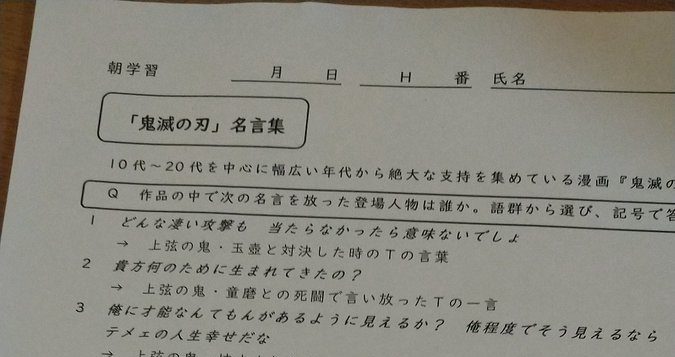 朝学習　　月　　日　　H　　番　氏名
「鬼滅の刃」名言集
10代～20代を中心に幅広い年代から絶大な支持を集めている漫画『鬼滅の
Q　作品の中で次の名言を放った登場人物は誰か。語群から選び、記号で答
1　どんな凄い攻撃も　当たらなかったら意味ないでしょ
→　上弦の鬼・玉壺と対決した時のTの言葉
2　貴方何のために生まれてきたの？
→　上弦の鬼・童磨との死闘で言い放ったTの一言
3　俺に才能なんてもんがあるように見えるか？　俺程度でそう見えるなら
テメェの人生幸せだな
→　上弦の鬼・